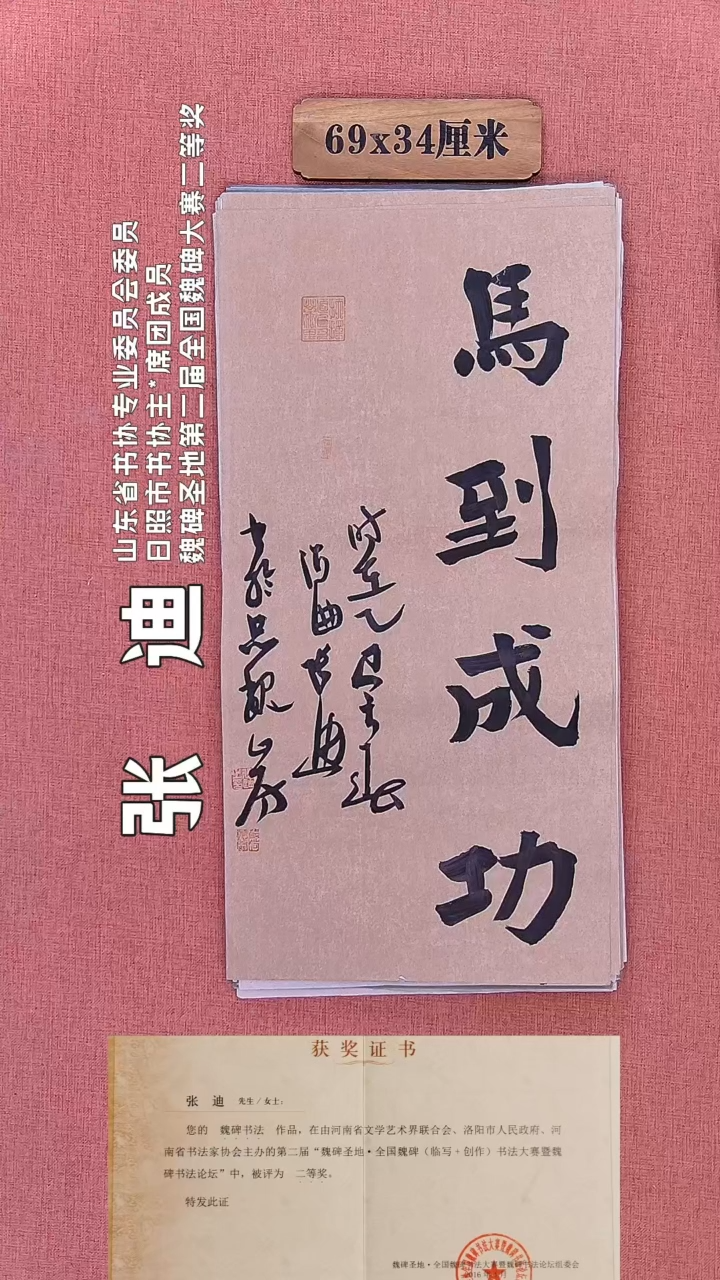 69x34厘米
山东省书协专业委员会委员
日照市书协主*席团成员
魏碑圣地第二届全国魏碑大赛二等奖
张 迪
馬到成功
时在乙巳
获奖证书
张 迪 先生/女士:
您的 魏碑书法 作品,在由河南省文学艺术界联合会、洛阳市人民政府、河
南省书法家协会主办的第二届“魏碑圣地·全国魏碑(临写+创作)书法大赛暨魏
碑书法论坛”中,被评为 二等奖。
特发此证
魏碑圣地·全国魏碑书法大赛暨魏碑书法论坛组委会